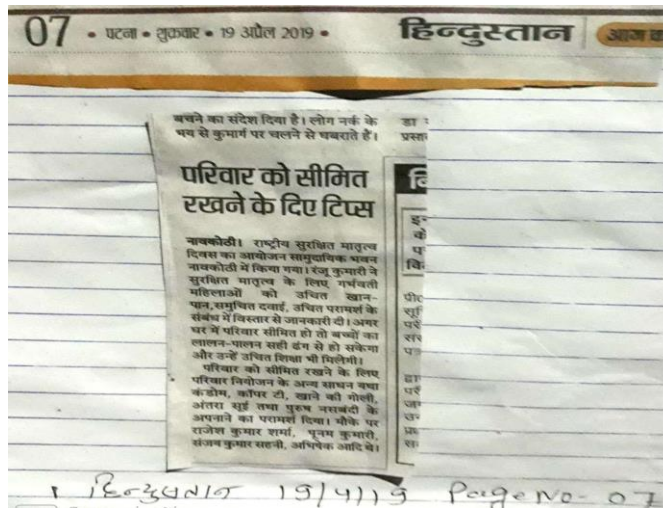 07 • पटना • शुक्रवार • 19 अप्रैल 2019 • हिन्दुस्तान आज का
बचने का संदेश दिया है। लोग नर्क के
भय से कुमार्ग पर चलने से घबराते हैं।
डा
प्रसा
परिवार को सीमित
रखने के दिए टिप्स
नावकोठी। राष्ट्रीय सुरक्षित मातृत्व
दिवस का आयोजन सामुदायिक भवन
नावकोठी में किया गया। रंजू कुमारी ने
सुरक्षित मातृत्व के लिए गर्भवती
महिलाओं को उचित खान-
पान,समुचित दवाई, उचित परामर्श के
संबंध में विस्तार से जानकारी दी। अगर
घर में परिवार सीमित हो तो बच्चों का
लालन-पालन सही ढंग से हो सकेगा
और उन्हें उचित शिक्षा भी मिलेगी।
परिवार को सीमित रखने के लिए
परिवार नियोजन के अन्य साधन यथा
कंडोम, कॉपर टी, खाने की गोली,
अंतरा सुई तथा पुरुष नसबंदी के
अपनाने का परामर्श दिया। मौके पर
राजेश कुमार शर्मा, पूनम कुमारी,
संजय कुमार सहनी, अभिषेक आदि थे।
हिन्दुस्तान 19/4/19 Page No- 07